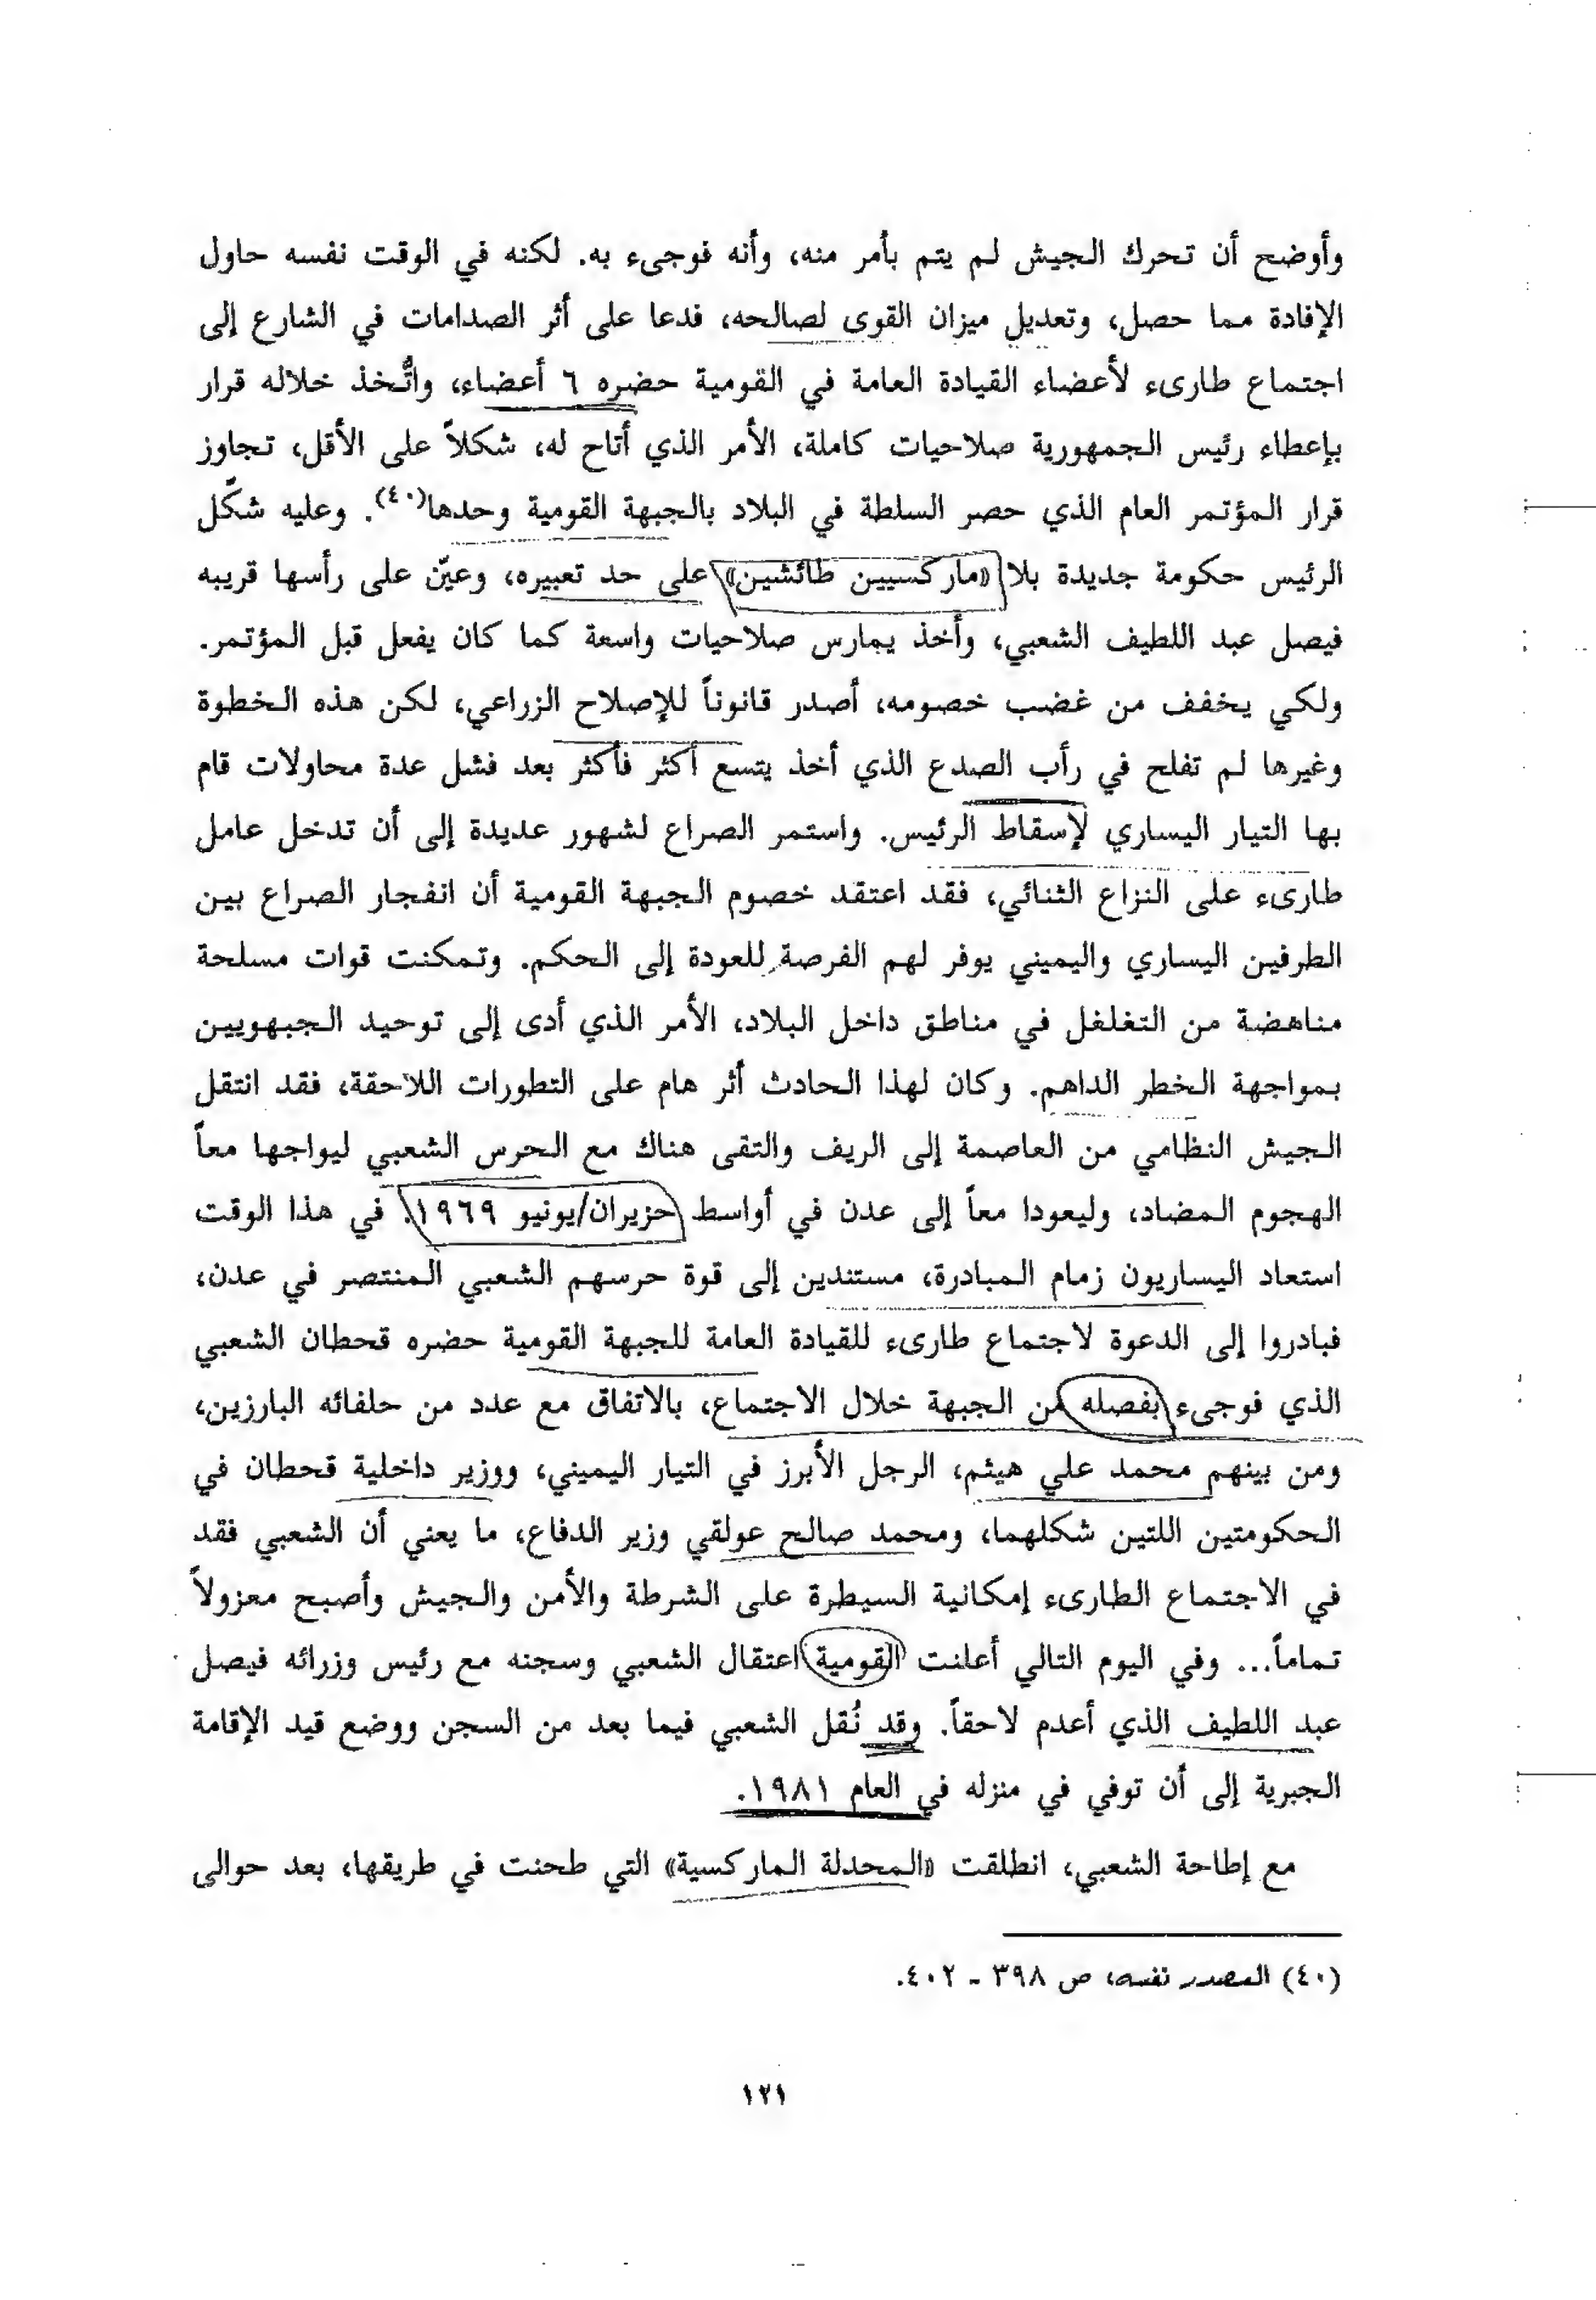 وأوضح أن تحرك الجيش لم يتم بأمر منه، وأنه فوجىء به. لكنه في الوقت نفسه حاول
الإفادة مما حصل، وتعديل ميزان القوى لصالحه، فدعا على أثر الصدامات في الشارع إلى
اجتماع طارىء لأعضاء القيادة العامة في القومية حضره ٦ أعضاء، واتُّخذ خلاله قرار
بإعطاء رئيس الجمهورية صلاحيات كاملة، الأمر الذي أتاح له، شكلاً على الأقل، تجاوز
قرار المؤتمر العام الذي حصر السلطة في البلاد بالجبهة القومية وحدها(٤٠). وعليه شكّل
الرئيس حكومة جديدة بلا «ماركسيين طائشين» على حد تعبيره، وعيّن على رأسها قريبه
فيصل عبد اللطيف الشعبي، وأخذ يمارس صلاحيات واسعة كما كان يفعل قبل المؤتمر.
ولكي يخفف من غضب خصومه، أصدر قانوناً للإصلاح الزراعي، لكن هذه الخطوة
وغيرها لم تفلح في رأب الصدع الذي أخذ يتسع أكثر فأكثر بعد فشل عدة محاولات قام
بها التيار اليساري لإسقاط الرئيس. واستمر الصراع لشهور عديدة إلى أن تدخل عامل
طارىء على النزاع الثنائي، فقد اعتقد خصوم الجبهة القومية أن انفجار الصراع بين
الطرفين اليساري واليميني يوفر لهم الفرصة للعودة إلى الحكم. وتمكنت قوات مسلحة
مناهضة من التغلغل في مناطق داخل البلاد، الأمر الذي أدى إلى توحيد الجبهويين
بمواجهة الخطر الداهم. وكان لهذا الحادث أثر هام على التطورات اللاحقة، فقد انتقل
الجيش النظامي من العاصمة إلى الريف والتقى هناك مع الحرس الشعبي ليواجها معاً
الهجوم المضاد، وليعودا معاً إلى عدن في أواسط حزيران/يونيو ١٩٦٩. في هذا الوقت
استعاد اليساريون زمام المبادرة، مستندين إلى قوة حرسهم الشعبي المنتصر في عدن،
فبادروا إلى الدعوة لاجتماع طارىء للقيادة العامة للجبهة القومية حضره قحطان الشعبي
الذي فوجىء بفصله من الجبهة خلال الاجتماع، بالاتفاق مع عدد من حلفائه البارزين،
ومن بينهم محمد علي هيثم، الرجل الأبرز في التيار اليميني، ووزير داخلية قحطان في
الحكومتين اللتين شكلهما، ومحمد صالح عولقي وزير الدفاع، ما يعني أن الشعبي فقد
في الاجتماع الطارىء إمكانية السيطرة على الشرطة والأمن والجيش وأصبح معزولاً
تماماً... وفي اليوم التالي أعلنت القومية اعتقال الشعبي وسجنه مع رئيس وزرائه فيصل
عبد اللطيف الذي أعدم لاحقاً. وقد نُقل الشعبي فيما بعد من السجن ووضع قيد الإقامة
الجبرية إلى أن توفي في منزله في العام ١٩٨١.
مع إطاحة الشعبي، انطلقت «المحدلة الماركسية» التي طحنت في طريقها، بعد حوالى
(٤٠) المصدر نفسه، ص ٣٩٨ - ٤٠٢.
١٢١